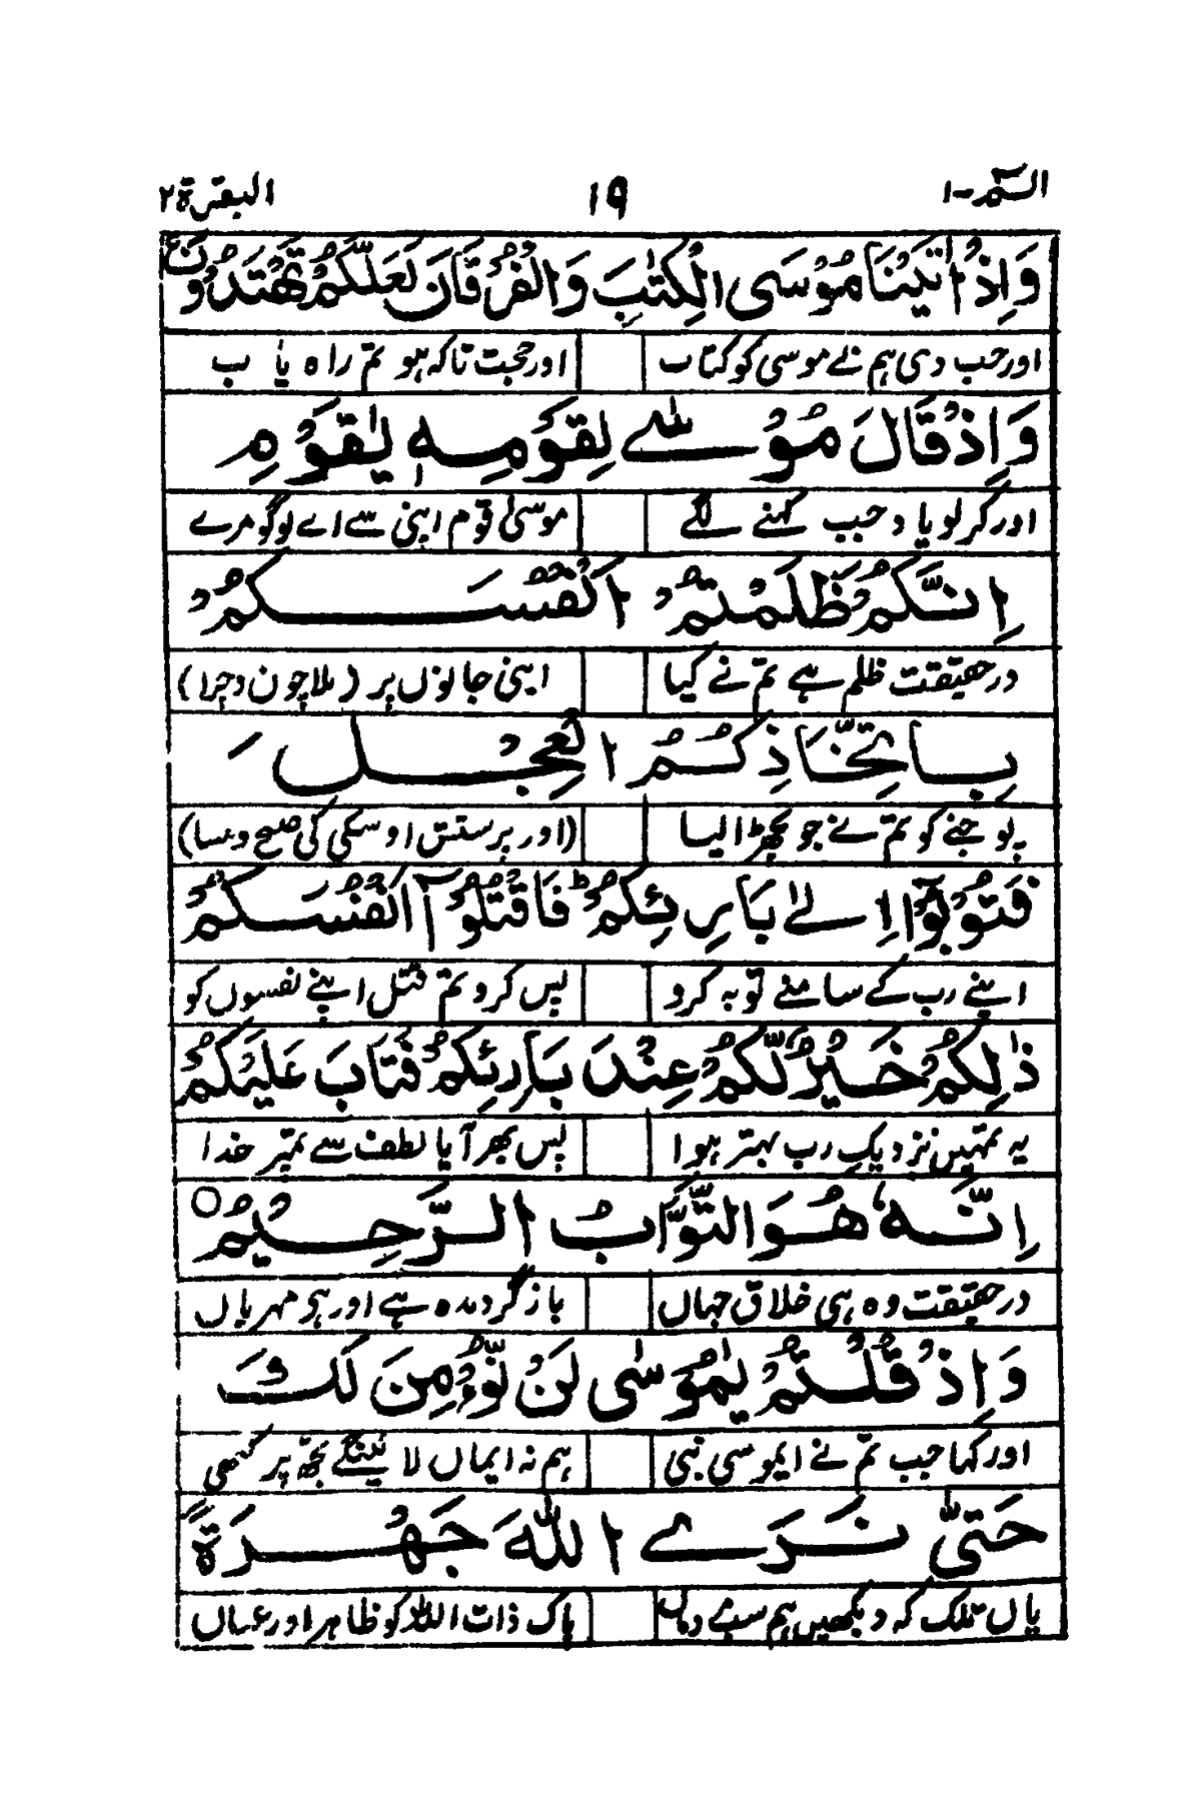 الٓمّٓ-١ ١٩ البقرة ٢
وَاِذْ اٰتَيْنَا مُوْسَى الْكِتٰبَ وَالْفُرْقَانَ لَعَلَّكُمْ تَهْتَدُوْنَ
اور جب دی ہم نے موسی کو کتاب اور حجت تاکہ ہو تم راہ یاب
وَاِذْ قَالَ مُوْسٰے لِقَوْمِهٖ يٰقَوْمِ
اور کر لو یاد جب کہنے لگے موسیٰ قوم اپنی سے اے لوگو مرے
اِنَّكُمْ ظَلَمْتُمْ اَنْفُسَكُمْ
در حقیقت ظلم ہے تم نے کیا اپنی جانوں پر (بلا چون و چرا)
بِاتِّخَاذِكُمُ الْعِجْلَ
پوجنے کو تم نے جو بچھڑا لیا (اور پرستش اوسکی کی صبح و مسا)
فَتُوْبُوْٓا اِلٰے بَارِئِكُمْ ط فَاقْتُلُوْٓا اَنْفُسَكُمْ
اپنے رب کے سامنے توبہ کرو پس کرو تم قتل اپنے نفسوں کو
ذٰلِكُمْ خَيْرٌ لَّكُمْ عِنْدَ بَارِئِكُمْ فَتَابَ عَلَيْكُمْ
یہ تمہیں نزدیک رب بہتر ہوا پس بھر آیا لطف سے تمپر خدا
اِنَّهٗ هُوَ التَّوَّابُ الرَّحِيْمُ ○
در حقیقت وہ ہی خلاق جہاں باز گردیدہ ہے اور ہے مہرباں
وَاِذْ قُلْتُمْ يٰمُوْسٰى لَنْ نُّؤْمِنَ لَكَ
اور کہا جب تم نے ایموسی نبی ہم نہ ایماں لائینگے تجھ پر کبھی
حَتّٰى نَرَے اللّٰهَ جَهْرَةً
یاں تلک کہ دیکھیں ہم سب وہاں پاک ذات اللہ کو ظاہر اور عیاں